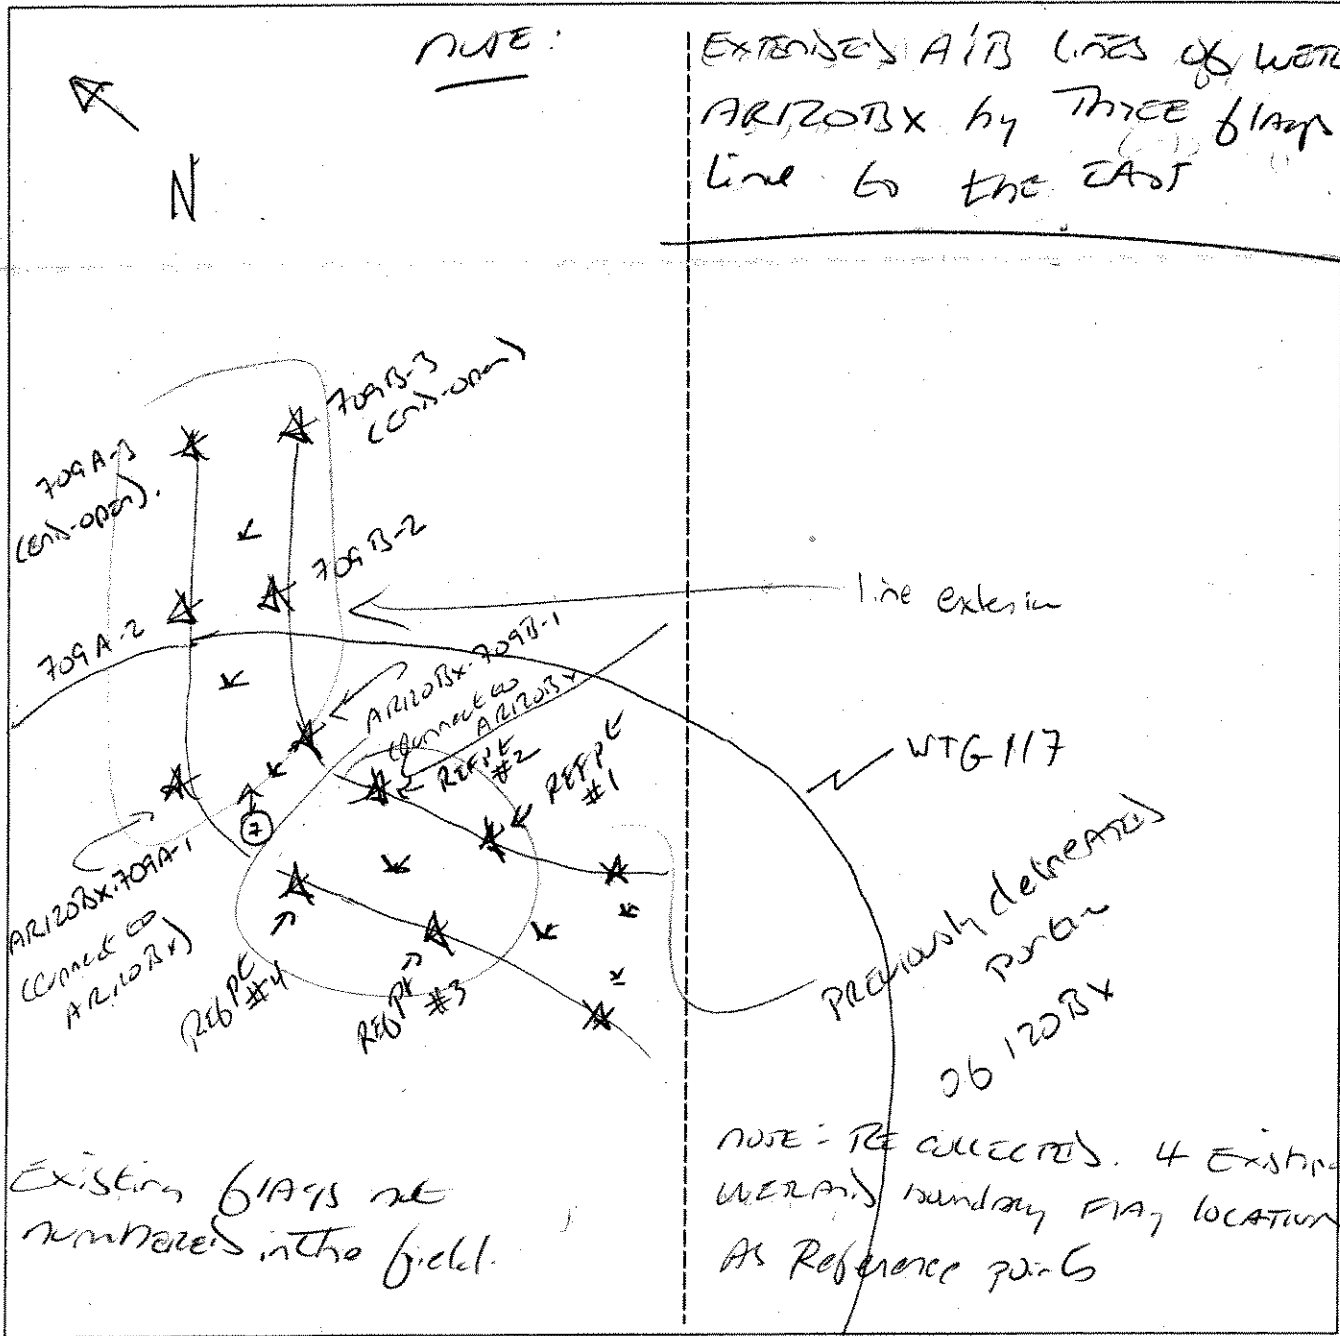 NOTE:
EXTENDED A/B LINES OF WETL
AR120BX by THREE flags
line to the EAST
N
709B-3
(END-OPEN)
709A-3
(END-OPEN).
709B-2
709A-2
line extension
AR120BX-709B-1
(Connect to
AR120BX
WTG 117
REFPt
#2
REFPt
#1
7
AR120BX-709A-1
(Connect to
AR120BX)
REFPt
#4
REFPt
#3
PREVIOUSLY delineated
portion
of 120BX
Existing flags not
numbered in the field.
NOTE: RECOLLECTED. 4 Existing
WETLAND boundary FLAG LOCATION
AS Reference points